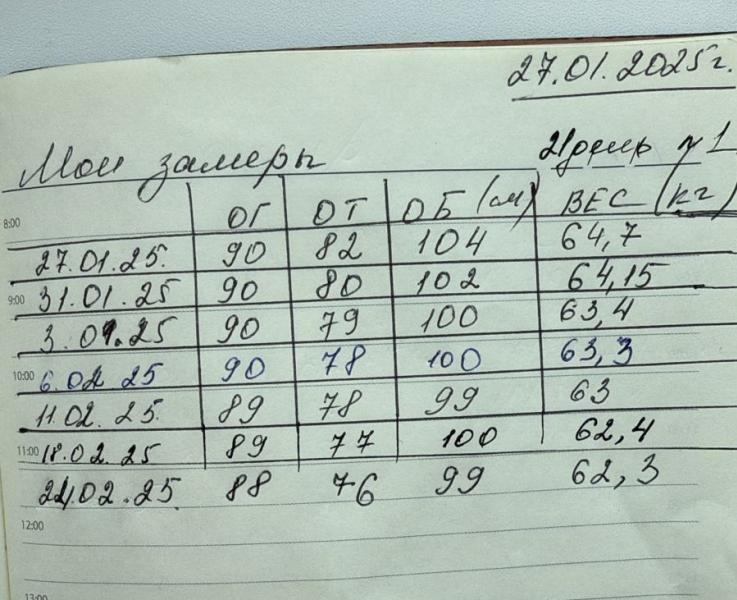 27.01.2025г.
Мои замеры
8:00 ОГ ОТ ОБ (см) ВЕС (кг)
27.01.25. 90 82 104 64,7
9:00 31.01.25 90 80 102 64,15
3.02.25 90 79 100 63,4
10:00 6.02 25 90 78 100 63,3
11.02. 25. 89 78 99 63
11:00 18.02.25 89 77 100 62,4
24.02.25 88 76 99 62,3
12:00
13:00